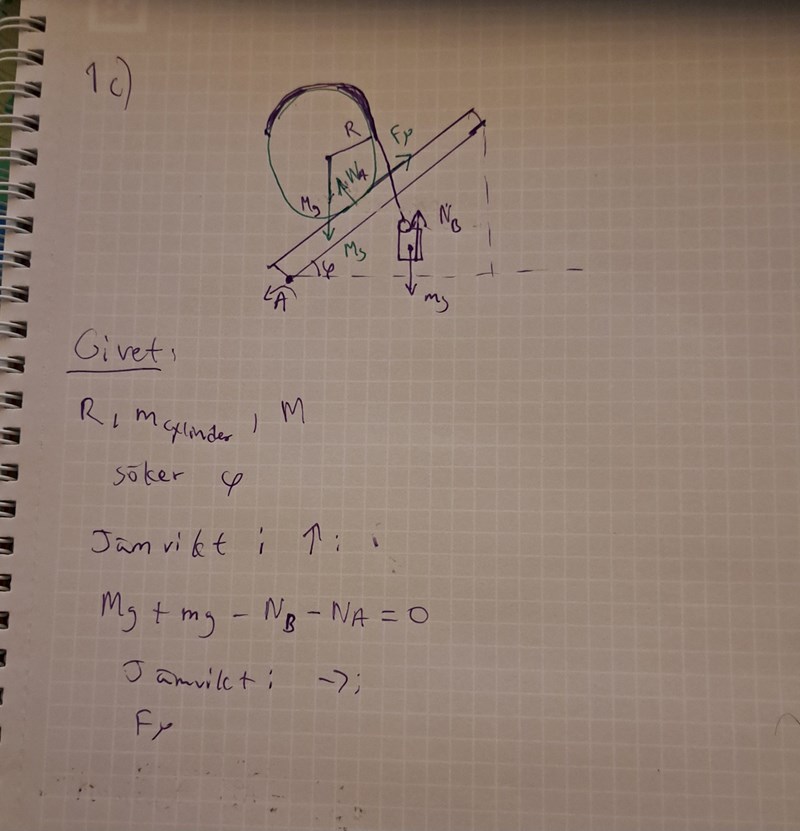 1c)
R
Fμ
NA
Mg
NB
Mg
φ
A
mg
Givet:
R, mcylinder, M
söker φ
Jämvikt i ↑:
Mg + mg - NB - NA = 0
Jämvikt i →:
Fμ